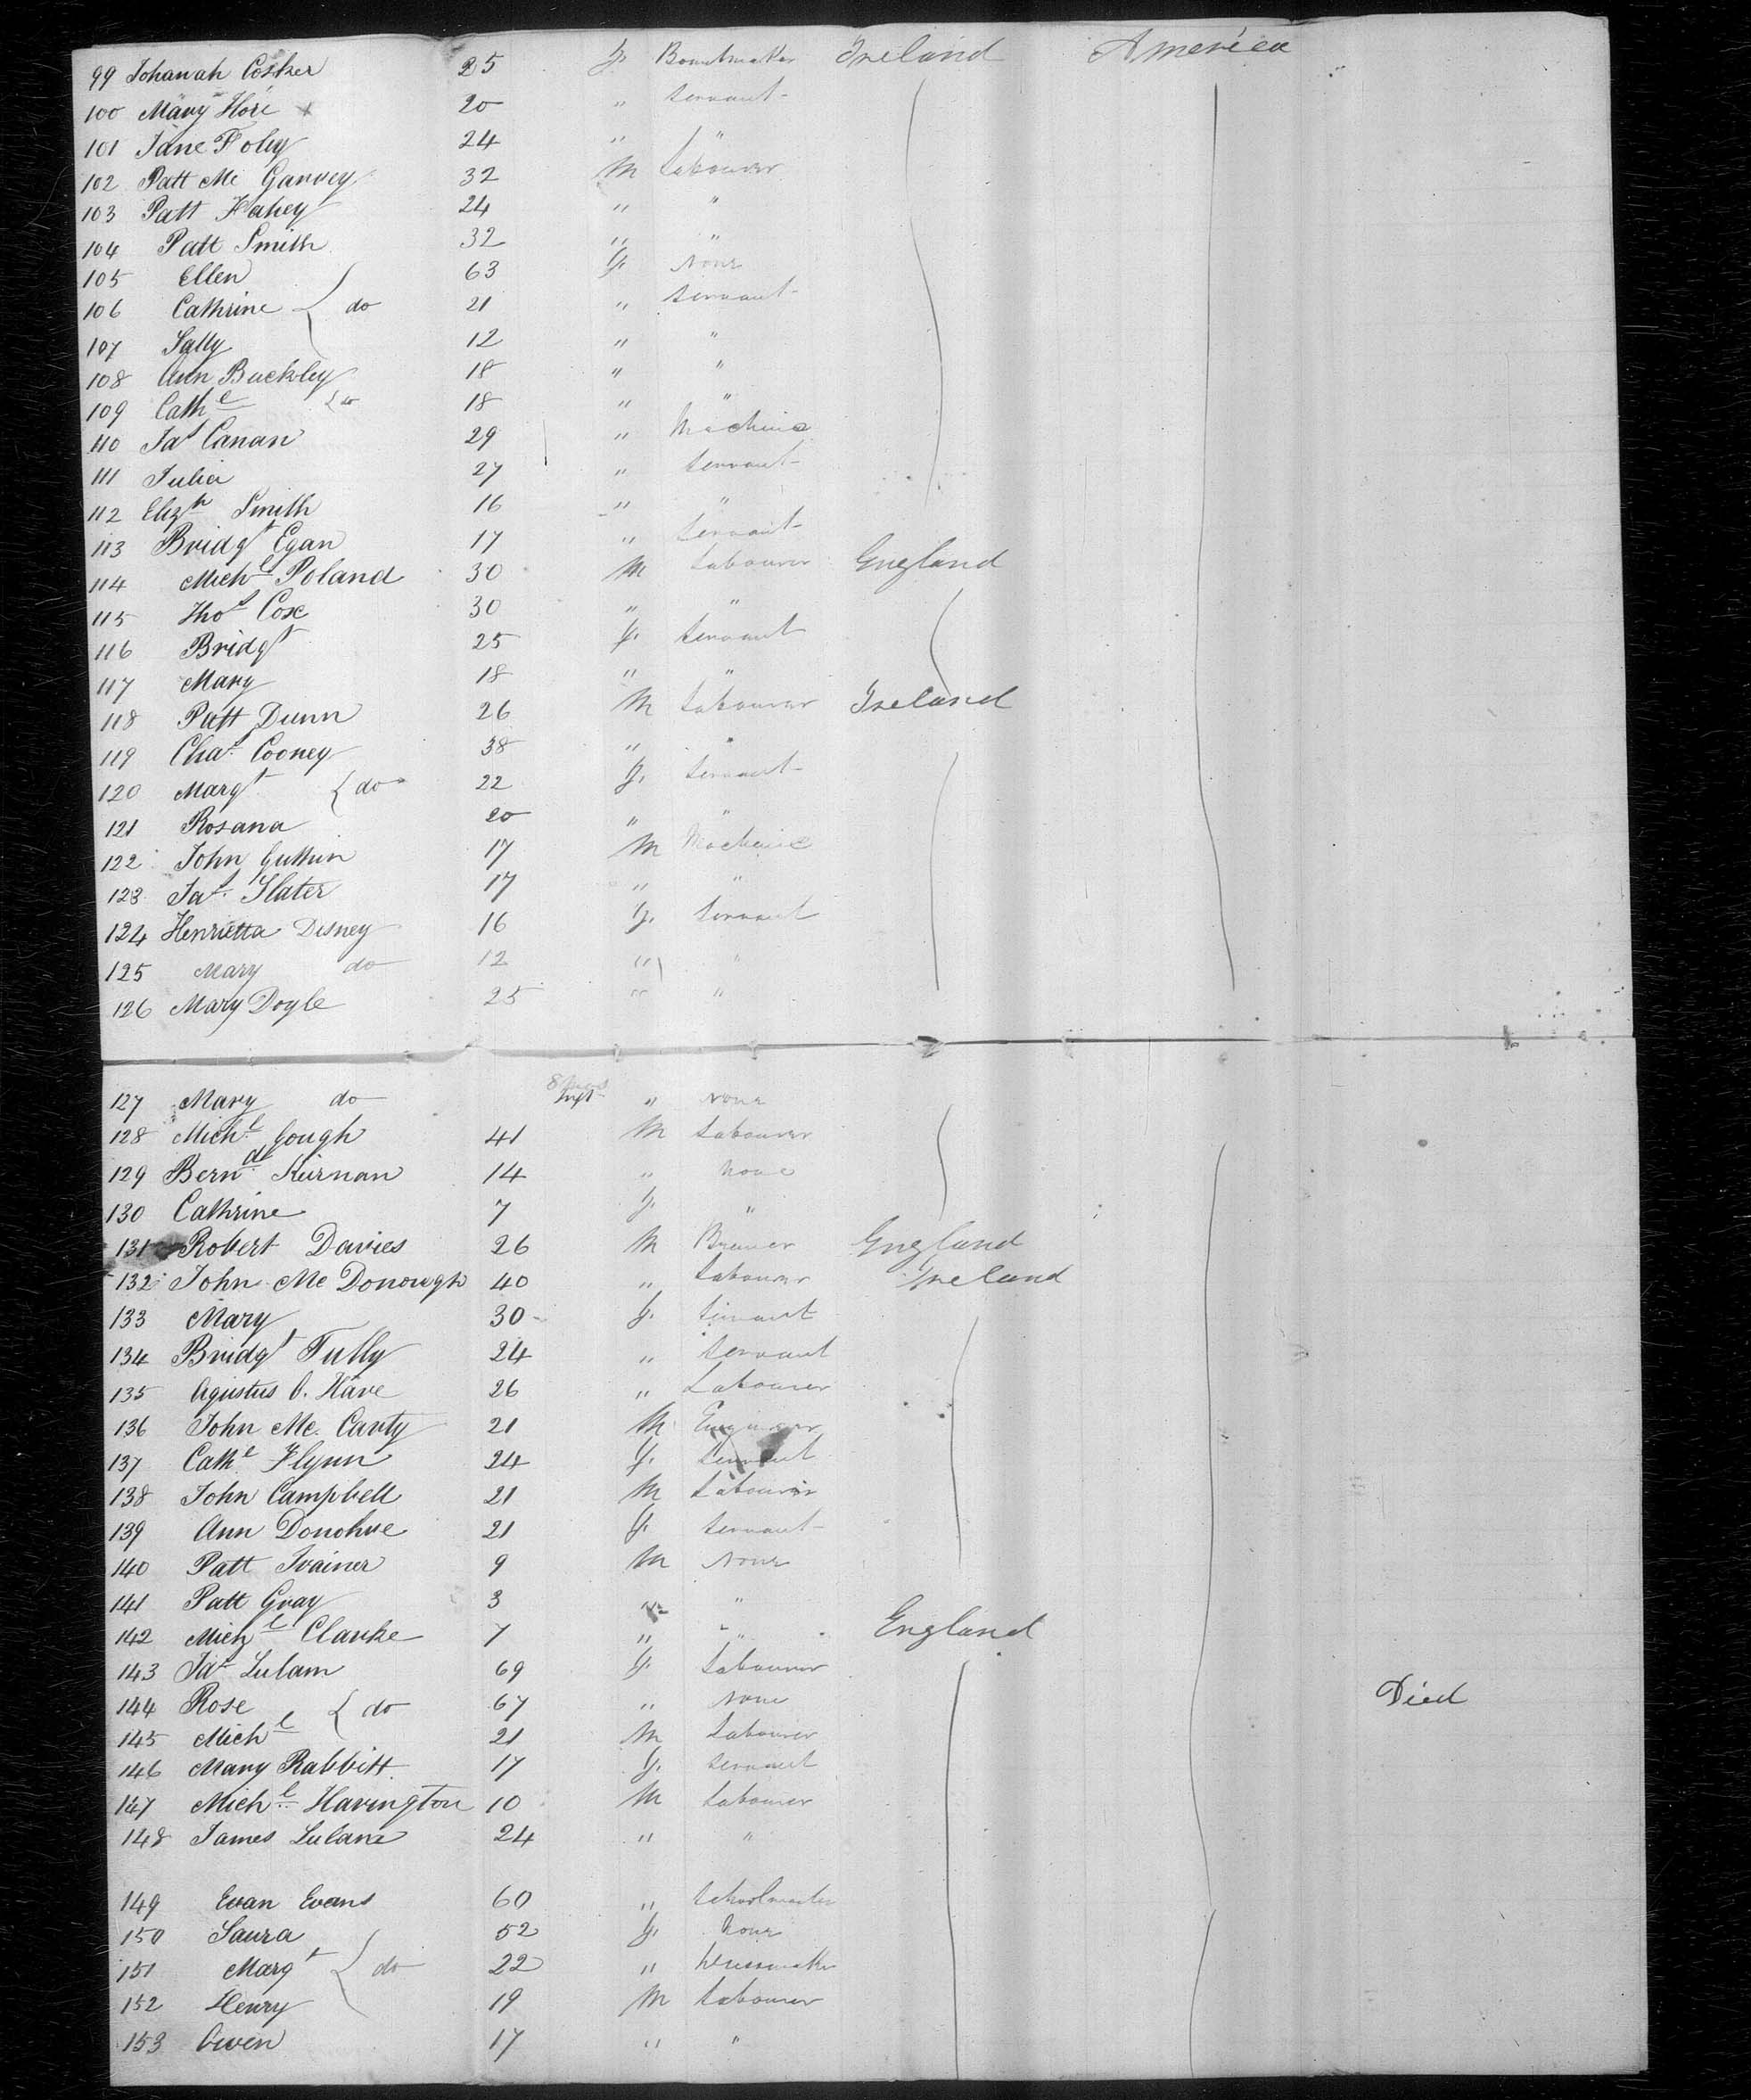 99 Johanah Cosker 25 f. Bonnetmaker Ireland America
100 Mary Hore x 20 " Servant
101 Jane Foley 24 " "
102 Patt Mc Garvey 32 M Labourer
103 Patt Fahey 24 " "
104 Patt Smith 32 " "
105 Ellen 63 f. None
106 Cathrine { do 21 " Servant
107 Sally 12 " "
108 Ann Buckley 18 " "
109 Cathe { do 18 " "
110 Jas Canan 29 " Mechanic
111 Julia 27 " Servant
112 Elizth Smith 16 " "
113 Bridgt Egan 17 " Servant
114 Michl Poland 30 M Labourer England
115 Thos Cox 30 " "
116 Bridgt 25 f. Servant
117 Mary 18 " "
118 Patt Dunn 26 M Labourer Ireland
119 Chas Cooney 38 " "
120 Margt { do 22 f. Servant
121 Rosana 20 " "
122 John 17 M Mechanic
123 Jas Slater 17 " "
124 Henrietta Disney 16 f. Servant
125 Mary do 12 " "
126 Mary Doyle 25 " "
127 Mary do 8 mos Inft " None
128 Michl Gough 41 M Labourer
129 Bernd Kiernan 14 " None
130 Cathrine 7 f. "
131 Robert Davies 26 M Brewer England
132 John Mc Donough 40 " Labourer Ireland
133 Mary 30 f. Servant
134 Bridgt Tully 24 " Servant
135 Agustus O. Hare 26 " Labourer
136 John Mc. Carty 21 M Engineer
137 Cathe Flynn 24 f. Servant
138 John Campbell 21 M Labourer
139 Ann Donohue 21 f. Servant
140 Patt Trainer 9 M None
141 Patt Gray 3 " "
142 Michl Clarke 7 " " England
143 Jas Lulam 69 f. Labourer
144 Rose { do 67 " None Died
145 Michl 21 M Labourer
146 Mary Rabbitt 17 f. Servant
147 Michl Harington 10 M Labourer
148 James Lulam 24 " "
149 Evan Evans 60 " Schoolmaster
150 Laura 52 f. None
151 Margt { do 22 " Dressmaker
152 Henry 19 M Labourer
153 Owen 17 " "